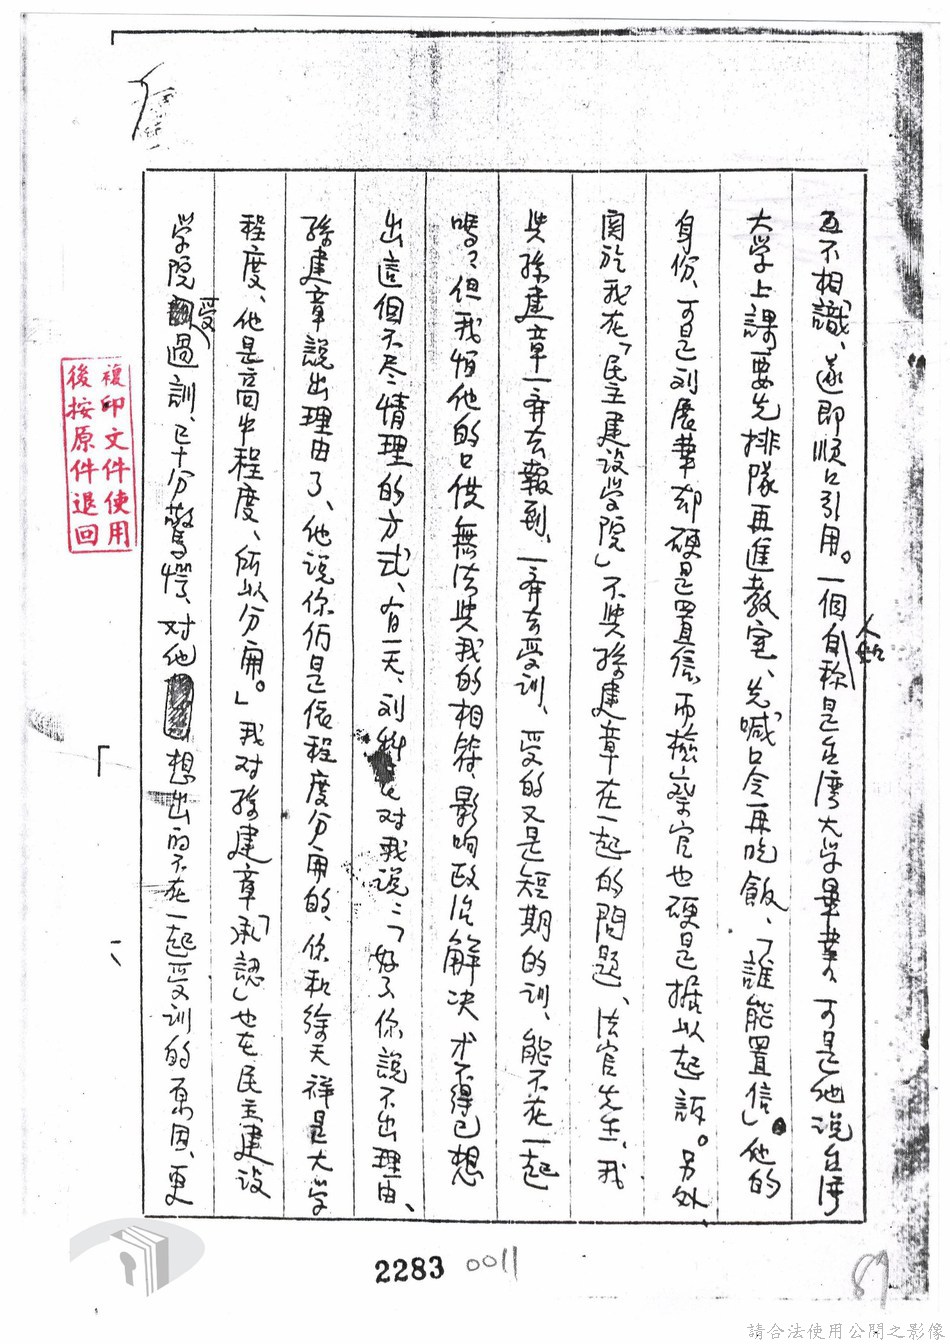 互不相識、遂即順口引用。一個自称人始是台湾大学畢業、可是他说台湾
大学上課要先排隊再進教室、先喊口令再吃飯、「誰能置信」。他的
身份、可是刘展華却硬是置信、而檢察官也硬是据以起訴。另外
関於我在「民主建设学院」不與孫建章在一起的問題、法官先生、我
與孫建章一齊去報到、一齊去受训、受的又是短期的训、能不在一起
嗎？但我怕他的口供無法與我的相符、影响政治解决才不得已想
出這個不尽情理的方式、有一天、刘科 对我说：「好了你説不出理由、
孫建章說出理由了、他说你们是依程度分開的、你和徐天祥是大学
程度、他是高中程度、所以分開。」我对孫建章「承認」也在民主建设
学院受過訓、已十分驚愕、对他想出的不在一起受训的原因、更
複印文件使用
後按原件退回
2283 0011
89
請合法使用公開之影像